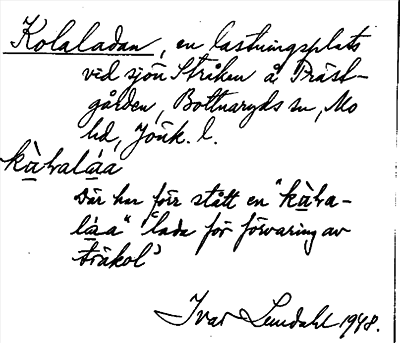 Kolaladan, en lastningsplats
vid sjön Stråken å Präst-
gården, Bottnaryds sn, Mo
hd, Jönk. l.
kàvaláa
Där har förr stått en "kàva-
láa" 'lada för förvaring av
träkol'
Ivar Lundahl 1948.